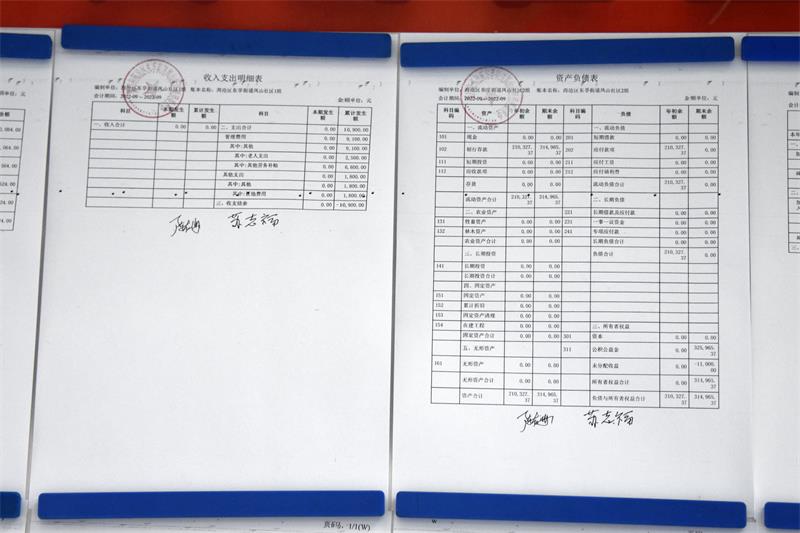 收入支出明细表
会计期间：2022-09 - 2022-09 金额单位：元
科目 本期发生额 累计发生额 科目 本期发生额 累计发生额
一、收入合计 0.00 0.00 二、支出合计 0.00 10,900.00
管理费用 0.00 9,100.00
其中:其他 0.00 9,100.00
其中:老人支出 0.00 2,500.00
其中:其他劳务补贴 0.00 6,600.00
其他支出 0.00 1,800.00
其中:其他 0.00 1,800.00
0.00 1,800.00
三、收支结余 0.00 -10,900.00
苏志福
资产负债表
会计期间：2022-09 - 2022-09 金额单位：元
科目编码 资产 年初余额 期末余额 科目编码 负债 年初余额 期末余额
一、流动资产 一、流动负债
101 现金 0.00 0.00 201 短期借款 0.00 0.00
102 银行存款 210,327.37 314,965.37 202 应付款项 210,327.37 0.00
111 短期投资 0.00 0.00 211 应付工资 0.00 0.00
112 应收款项 0.00 0.00 212 应付福利费 0.00 0.00
存货 0.00 0.00 流动负债合计 210,327.37 0.00
流动资产合计 210,327.37 314,965.37 二、长期负债
二、农业资产 221 长期借款及应付款 0.00 0.00
131 牲畜资产 0.00 0.00 231 一事一议资金 0.00 0.00
132 林木资产 0.00 0.00 241 专项应付款 0.00 0.00
农业资产合计 0.00 0.00 长期负债合计 0.00 0.00
三、长期投资 负债合计 210,327.37 0.00
141 长期投资 0.00 0.00
长期投资合计 0.00 0.00
四、固定资产
151 固定资产 0.00 0.00
152 累计折旧 0.00 0.00
153 固定资产清理 0.00 0.00
154 在建工程 0.00 0.00 三、所有者权益
固定资产合计 0.00 0.00 301 资本 0.00 0.00
五、无形资产 311 公积公益金 0.00 325,965.37
161 无形资产 0.00 0.00 未分配收益 0.00 -11,000.00
无形资产合计 0.00 0.00 所有者权益合计 0.00 314,965.37
资产合计 210,327.37 314,965.37 负债与所有者权益合计 210,327.37 314,965.37
苏志福
页码：1/1(W)